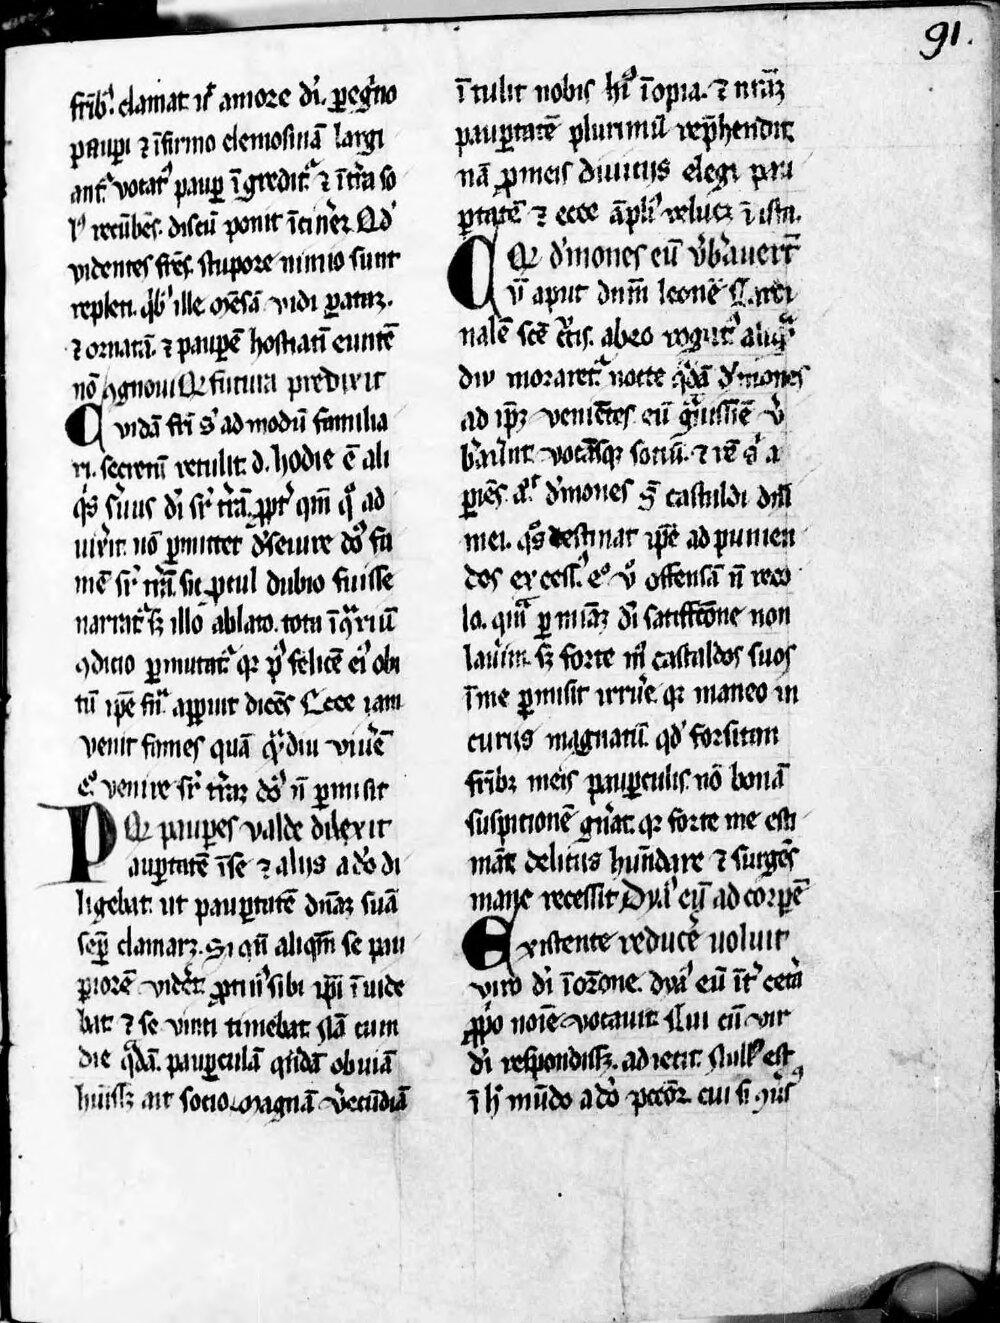 91.
fribꝰ. clamat it᷑ amore di. pegͥno
paupi ⁊ īfirmo elemosinā largi
antᷓ. votatᷓ paup īgreditᷓ. ⁊ īt̄ra so
lꝰ recūbēs. discū ponit ī cinēr. Qd᷑
videntes fr̄es. stupore nimio sunt
repleti. qͥbꝰ ille mēsā vidi paratā.
⁊ ornatā. ⁊ paupē hostiatī euntē
nō ꝯgnoui Qͥ futura predixit
Cuidā frī s᷑ admodū familia
ri. secretū retulit. d. hodie ē ali
qͥs s᷑uus di sr̄ t̄rā. ꝓpt᷑ qm̄ qͦ ad
uix᷑it. nō pmittet d᷑seuire dō fa
mē sr̄ t̄rā. sic ꝓcul dubio fuisse
narratᷓ. sꝫ illo ablato. tota ī ꝯt᷑riū
ꝯditio pmutatᷓ qꝛ pꝰ felicē eiꝰ obi
tū ipē frī apparuit dicēs Ecce iam
venit fames quā qᷓdiu viuē
eᷓ. venire sr̄ t̄rā dō n̄ pmisit
Qͥ paupes valde dilexit
Pauptatē ī se ⁊ aliis ado di
ligebat. ut pauptatē dn̄aꝫ suā
sep̄ clamarꝫ. Si qn̄ aliqm̄ se pau
piorē vidēt. ꝓtinꝰ sibi ip̄i īuide
bat. ⁊ se vinci timebat. Nā cum
die qᷓdā. paupculā qͣdā obuiā
huissꝫ ait socio. Magnā v᷑ecūdiā
ītulit nobis hꝰ īopia. ⁊ nr̄aꝫ
pauptatē plurimū rep̄hendit.
nā ꝓ meis diuitiis elegi pau
ptatē ⁊ ecce āplꝰ relucꝫ ī ista.
Qͥ d᷑mones eū v᷑b᷑auerūt
Cū aput dnm̄ leonē Cardi
nalē sc̄e crͥis. ab eo rogatꝰ aliqͣ
diu moraretᷓ nocte qͣdā d᷑mones
ad ip̄ꝫ veniētes eū gͣuissīe v᷑
b᷑auūt. vocāsqꝫ sociū. ⁊ rē s᷑ a
piēs. aͥt d᷑mones s̄ castaldi dn̄i
mei. qͦs destinat ip̄e ad punien
dos excessꝰ. eͦ v᷑ offensā n̄ reco
lo. quā p mīaꝫ di satiffc̄one non
lau᷑im. sꝫ forte iō castaldos suos
ī me pmisit irru᷑e qꝛ maneo in
curiis magnatū. qd᷑ forsitan
fribꝫ meis paupculis. nō bonā
suspitionē gn̄at. qꝛ forte me esti
māt deliciis hūdare ⁊ surgēs
mane recessit Dyabꝰ eū ad corpē
Existente reducē uoluit
viro di ī or̄one. dyaꝰ eū īt᷑ cetera
ꝓpo noīe vocauit. Cui cū vir
di respondissꝫ. adiecit. Nullꝰ est
ī hꝰ mūdo ado pecc̄or. cui si ꝯūsꝰ